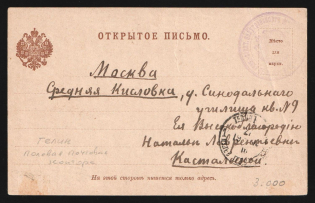 ОТКРЫТОЕ ПИСЬМО.
Мѣсто
для
марки.
Москва
Средняя Кисловка, д. Синодальнаго
училища кв. №9
Ея Высокоблагородію
Натальѣ Лаврентьевнѣ
Кастальской.
полевая почтовая
контора
На этой сторонѣ пишется только адресъ.
3:000